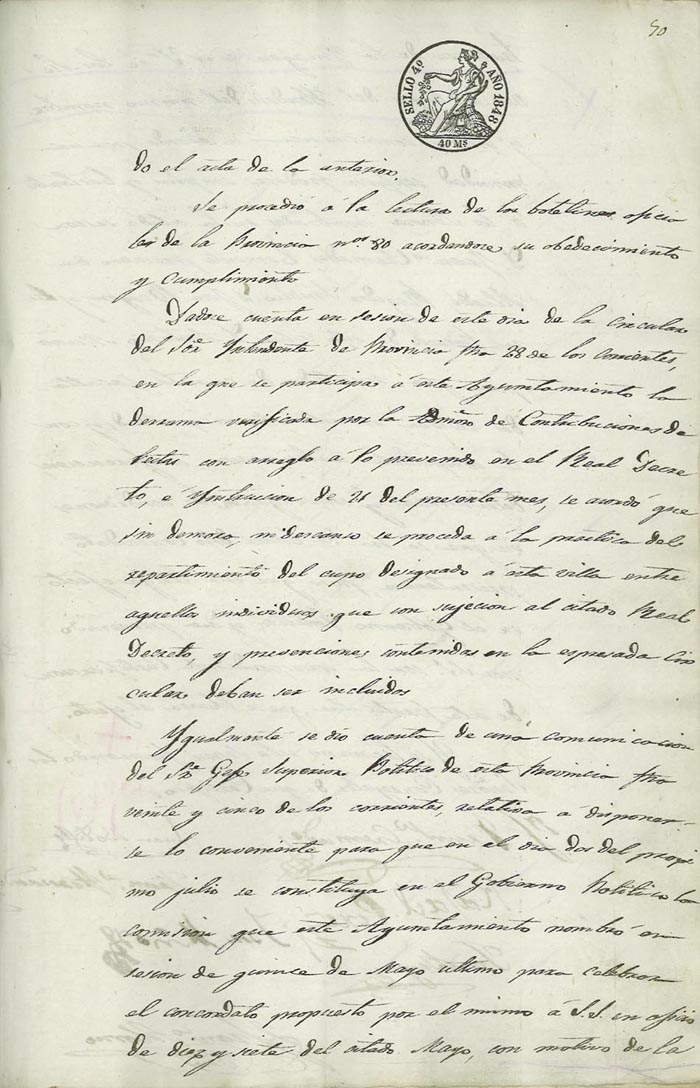 50
SELLO 4º AÑO 1848
40 Ms
do el acta de la anterior.
Se procedió á la lectura de los boletines oficia
les de la Provincia nos. 80 acordandose su obedecimiento
y cumplimiento
Dadose cuenta en sesion de este dia de la circular
del Sor. Yntendente de Provincia fha 28 de los corrientes,
en la que se participa á este Ayuntamiento la
derrama verificada por la Admon. de Contribuciones di
rectas con arreglo á lo prevenido en el Real Decre
to, é Ynstruccion de 21 del presente mes, se acordó que
sin demora, ni descanso se proceda á la practica del
repartimiento del cupo designado á esta villa entre
aquellos individuos que con sujecion al citado Real
Decreto, y prevenciones contenidas en la espresada Cir
cular deban ser incluidos
Ygualmente se dio cuenta de una comunicacion
del Sr. Gefe Superior Politico de esta Provincia fha
veinte y cinco de los corrientes, relativa a disponer
se lo conveniente para que en el dia dos del procsi
mo julio se constituya en el Gobierno Politico la
comision que este Ayuntamiento nombró en
sesion de quince de Mayo ultimo para celebrar
el concordato propuesto por el mismo á S.S. en oficio
de diez y siete del citado Mayo, con motivo de la